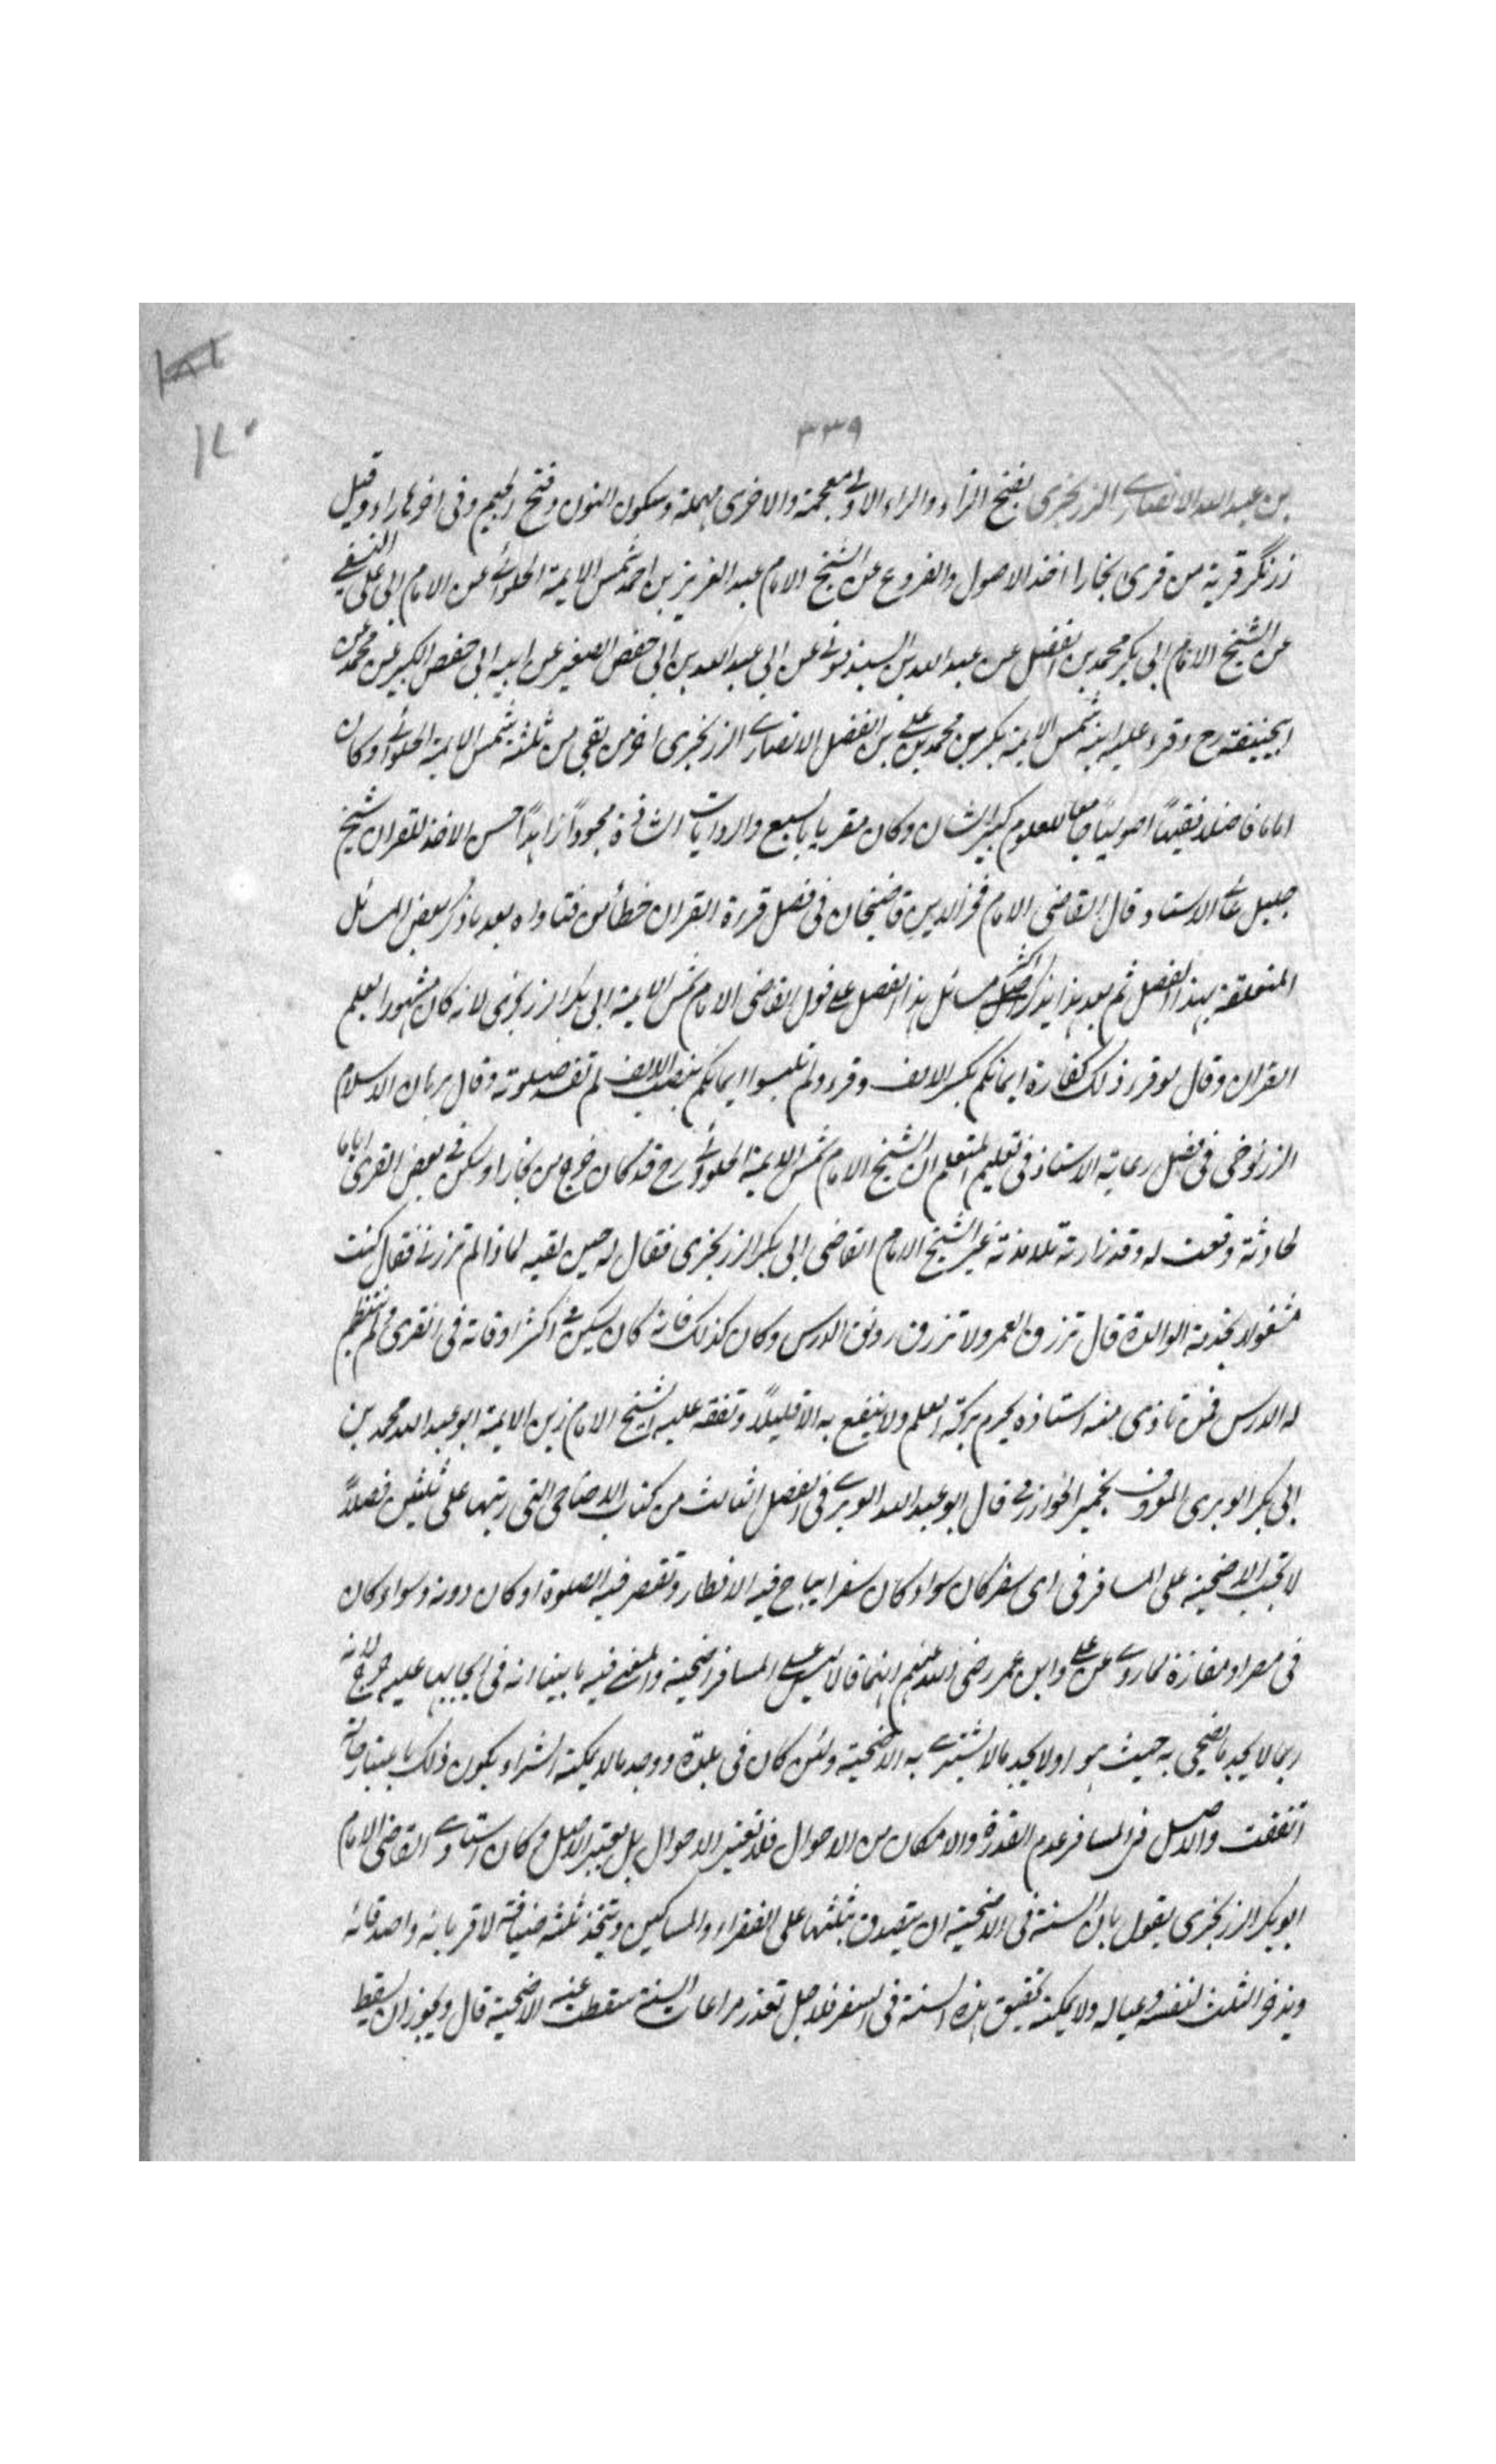 ١٨١
١٧٠
٣٣٩
بن عبد الله الانصاري الزرنجرى بفتح الزاء والراء الاولى معجمة والاخرى مهملة وسكون النون وفتح الجيم وفى اخرها راء وقيل
زرنگر قرية من قرى بخارا اخذ الاصول والفروع عن الشيخ الامام عبد العزيز بن احمد شمس الايمة الحلوائي عن الامام ابى على النسفي
عن الشيخ الامام ابى بكر محمد بن الفضل عن عبد الله بن السبذموني عن ابى عبد الله بن ابى حفص الصغير عن ابيه ابى حفص الكبير عن محمد عن
ابيحنيفة رح وقرء عليه ابنه شمس الايمة بكر بن محمد بن على بن الفضل الانصاري الزرنجرى اخر من بقى من ثلثة شمس الايمة الحلوائي وكان
اماما فاضلا فقيهاً اصولياً جامعا للعلوم كبير الشان وكان مقريا بالسبع والروايات الشاذة مجوداً زاهداً حسن الاخذ للقران شيخ
جليل عالي الاستاد قال القاضى الامام فخر الدين قاضيخان فى فصل قرءة القران خطأ من فتاواه بعد ما ذكر بعض المسائل
المتعلقة بهذا الفصل ثم بعد هذا يذكر اكثر مسائل هذا الفصل على قول القاضى الامام شمس الايمة ابى بكر الزرنجرى لانه كان مشهورا بعلم
القران وقال لو قرء ذلك كفارة ايمانكم بكسر الالف وقرء ولم يلبسوا ايمانكم بنصب الالف لم تفسد صلوته وقال برهان الاسلام
الزرنوخى فى فصل رعاية الاستاذ فى تعليم المتعلم ان الشيخ الامام شمس الايمة الحلوائي رح قد كان خرج من بخارا وسكن فى بعض القرى اياما
لحادثة وقعت له وقد زارته تلامذته غير الشيخ الامام القاضى ابى بكر الزرنجرى فقال له حين لقيه لماذا لم تزرنى فقال كنت
مشغولا بخدمة الوالدة قال ترزق العمر ولا ترزق رونق الدرس وكان كذلك فانه كان يسكن فى اكثر اوقاته فى القرى ولم ينتظم
له الدرس فمن تاذى منه استاذه يحرم بركة العلم ولا ينتفع به الا قليلاً وتفقه عليه الشيخ الامام زين الايمة ابو عبد الله محمد بن
ابى بكر الوبرى المعروف بخمير الخوارزمى قال ابو عبد الله الوبري فى الفصل الثالث من كتاب الاضاحى التى رتبها على ثلثين فصلاً
لا تجب الاضحية على المسافر فى اى سفر كان سواء كان سفرا يباح فيه الافطار وتقصر فيه الصلوة او كان دونه وسواء كان
فى مصر او مفازة لما روى عن على وابن عمر رضى الله عنهم انهما قالا ليس على المسافر اضحية والمعنى فيه ما بينا انه فى ايجابها عليه حرج لانه
ربما لا يجد ما يضحى به حيث هو او لا يجد مالا يشتري به الاضحية ولئن كان فى بلدة ووجد مالا يمكنه الشراء يكون ذلك باعتبار حالة
اتفقت والاصل فى المسافر عدم القدرة والامكان من الاحوال فلا تعتبر الاحوال بل يعتبر الاصل وكان استاذي القاضى الامام
ابو بكر الزرنجرى يقول بان السنة فى الاضحية ان يتصدق بثلثها على الفقراء والمساكين ويتخذ ثلثه ضيافة لاقربائه واصدقائه
ويدخر الثلث لنفسه وعياله ولا يمكنه تحقيق هذه السنة فى السفر فلاجل تعذر مراعات السنة سقطت عنه الاضحية قال ويجوز ان يسقط